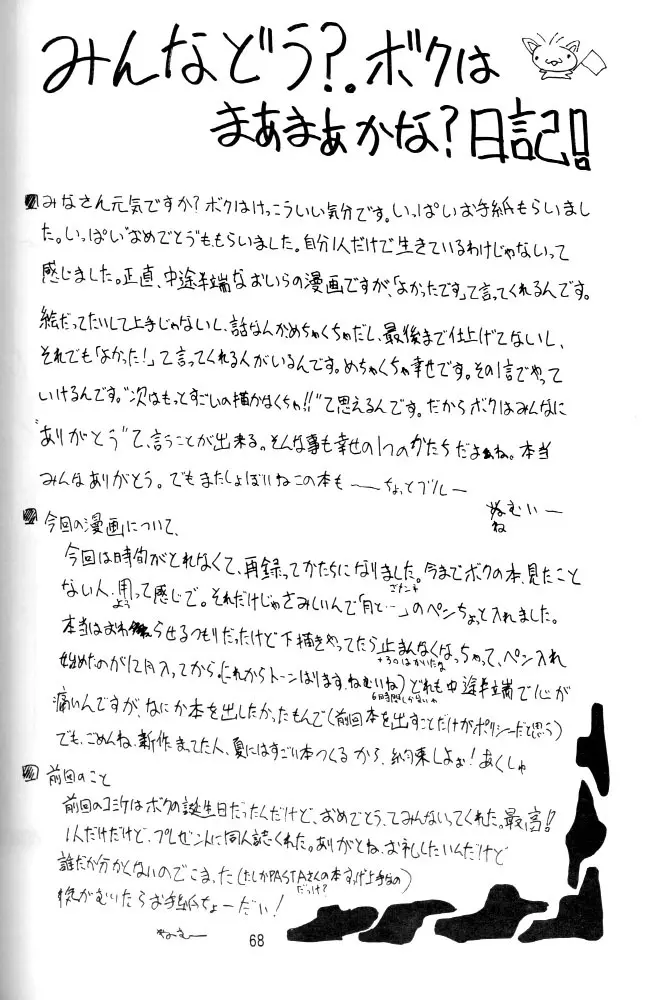 みんなどう?。ボクは
まあまあかな?日記!!
みなさん元気ですか?ボクはけっこういい気分です。いっぱいお手紙もらいまし
た。いっぱい"おめでとう"ももらいました。自分1人だけで生きているわけじゃないって
感じました。正直、中途半端なおいらの漫画ですが、「よかったです」て言ってくれるんです。
絵だってたいして上手じゃないし、話なんかめちゃくちゃだし、最後まで仕上げてないし、
それでも「よかった!」て言ってくれる人がいるんです。めちゃくちゃ幸せです。その1言でやって
いけるんです。"次はもっとすごいの描かなくちゃ!!"て思えるんです。だからボクはみんなに
"ありがとう"て、言うことが出来る。そんな事も幸せの1つのかたちだよぉね。本当
みんなありがとう。でもまたしょぼいねこの本も ―― ちょっとブルー
ねむいー
ね
今回の漫画について、
今回は時間がとれなくて、再録ってかたちになりました。今までボクの本、見たこと
ない人、用って感じで。それだけじゃさみしいんで「月と…」のペンちょっと入れました。
よう
本当はおわらせるつもりだったけど下描きやってたら止まんなくなっちゃって、ペン入れ
始めたのが12月入ってから。(これからトーンはります、ねむいね)どれも中途半端で心が
6時間しかないわ
痛いんですが、なにか本を出したかったもんで(前回本を出すことだけがポリシーだと思う)
でも、ごめんね、新作まってた人、夏にはすごい本つくるから、約束しよぉ!あくしゅ
前回のこと
前回のコミケはボクの誕生日だったんだけど、おめでとう、てみんないってくれた。最高!!
1人だけだけど、プレゼントに同人誌くれた。ありがとね、お礼したいんだけど
誰だか分かんないのでこまった(たしかPASTAさんの本すげぇ上手なの)
だっけ?
気がむいたらお手紙ちょーだい!
ねむー
68